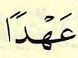 عَهْدًا